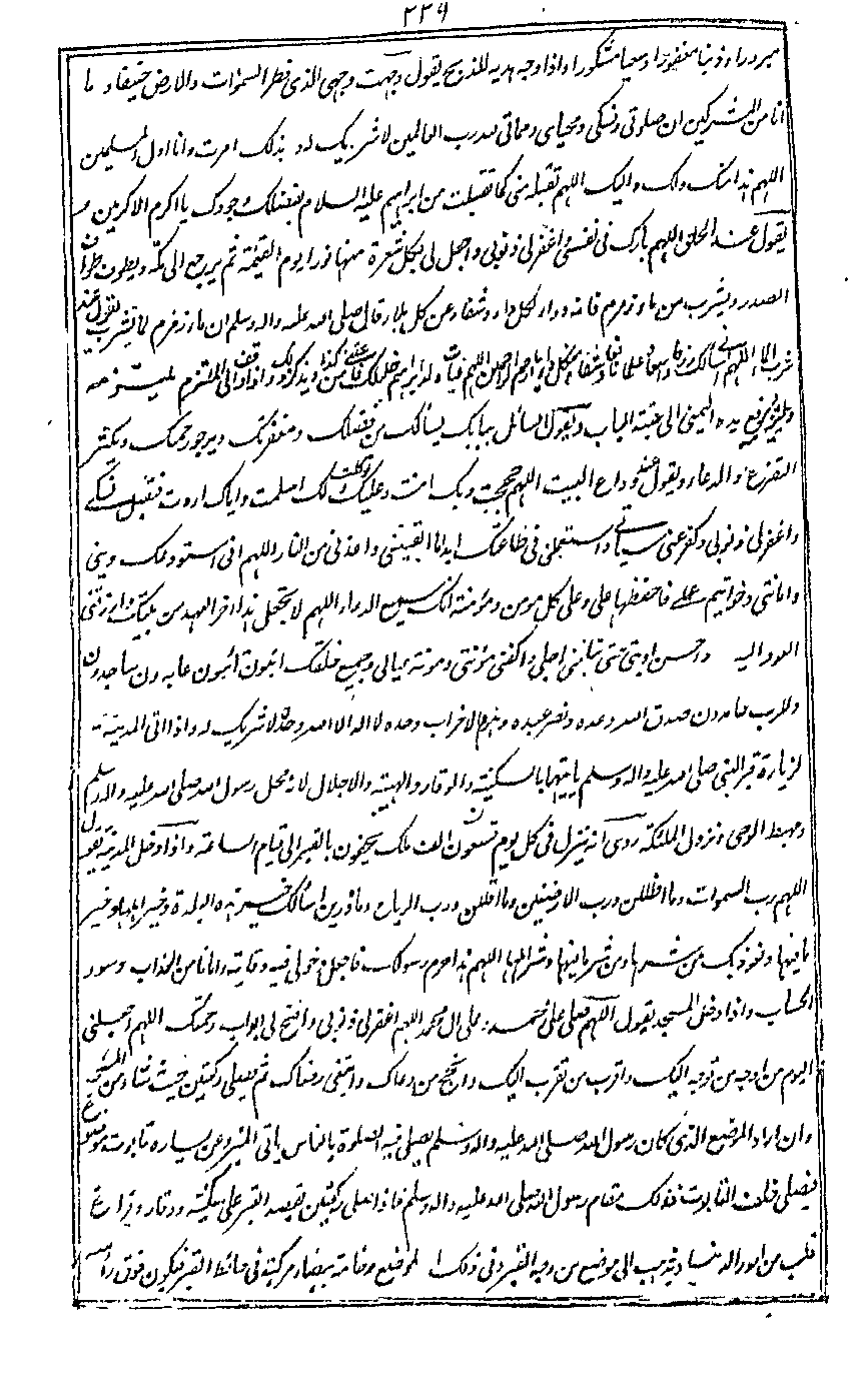 ٢٢٩
مبرورا وذنبا مغفورا وسعيا مشكورا واذا وجه هديه للذبح يقول وجهت وجهى للذى فطر السموات والارض حنيفا و ما
انا من المشركين ان صلوتى ونسكى ومحياى ومماتى لله رب العالمين لا شريك له و بذلك امرت وانا اول المسلمين
اللهم هذا منك ولك واليك اللهم تقبله منى كما تقبلت من ابراهيم عليه السلام بفضلك وجودك يا اكرم الاكرمين
يقول عند الحلق اللهم بارك فى نفسى واغفر لى ذنوبى واجعل لى بكل شعرة منها نورا يوم القيمة ثم يرجع الى مكة ويطوف طواف
الصدر ويشرب من ماء زمزم فانه دواء لكل داء وشفاء من كل بلاء قال صلى الله عليه واله وسلم ان ماء زمزم لما شرب يقول عند
شرب الماء اللهم انى اسالك رزقا واسعا وعلما نافعا وشفاء من كل داء يا ارحم الراحمين اللهم واذا اتى الملتزم
يده اليمنى الى عتبة الباب ويقول السائل ببابك يسألك من فضلك ومغفرتك ويرجو رحمتك ويكثر
التضرع والدعاء ويقول عند وداع البيت اللهم لك حججت وبك امنت وعليك توكلت ولك اسلمت واياك اردت فتقبل نسكى
واغفر لى ذنوبى وكفر عنى سيأتى واستعملنى فى طاعتك ابدا ما ابقيتنى واعذنى من النار اللهم انى استودعك دينى
وامانتى وخواتيم عملى فاحفظها على وعلى كل مومن ومؤمنة انك سميع الدعاء اللهم لا تجعل هذا اخر العهد من بيتك وارزقنى
العود اليه واحسن اوبتى حتى تبلغنى اجلى واكفنى مؤنتى ومونة عيالى وجميع خلقك ائبون تائبون عابدون ساجدون
وللرب حامدون صدق الله وعده ونصر عبده وهزم الاحزاب وحده لا اله الا الله وحده لا شريك له واذا اتى المدينة
لزيارة قبر النبى صلى الله عليه واله وسلم ياتيها بالسكينة والوقار والهيبة والاجلال لانه محل رسول الله صلى الله عليه واله وسلم
ومهبط الوحى ونزول الملئكة روى انه ينزل فى كل يوم سبعون الف ملك يحفون بالقبر الى قيام الساعة واذا دخل المدينة يقول
اللهم رب السموات وما اظللن ورب الارضين وما اقللن ورب الرياح وما ذرين اسألك خير هذه البلدة وخير اهلها وخير
ما فيها ونعوذ بك من شرها ومن شر ما فيها وشر اهلها اللهم هذا حرم رسولك فاجعل دخولى فيه وقاية وامانا من العذاب وسوء
الحساب واذا دخل المسجد يقول اللهم صل على محمد وعلى ال محمد اللهم اغفر لى ذنوبى وافتح لى ابواب رحمتك اللهم اجعلنى
اليوم من اوجه من توجه اليك واقرب من تقرب اليك وانجح من دعاك وابتغى رضاك ثم يصلى ركعتين حيث شاء من المسجد
وان اراد الموضع الذى كان رسول الله صلى الله عليه واله وسلم يصلى فيه الصلوة بالناس ياتى المنبر وعن يساره تابوت موضوع
فيصلى خلف التابوت فذلك مقام رسول الله صلى الله عليه واله وسلم فاذا صلى ركعتين يقصد القبر على سكينة ووقار وفراغ
قلب من امور الدنيا ويذهب الى موضع من وجه القبر وفى ذلك الموضع رخامة بيضاء مركبة فى حائط القبر فيكون فوق راسه